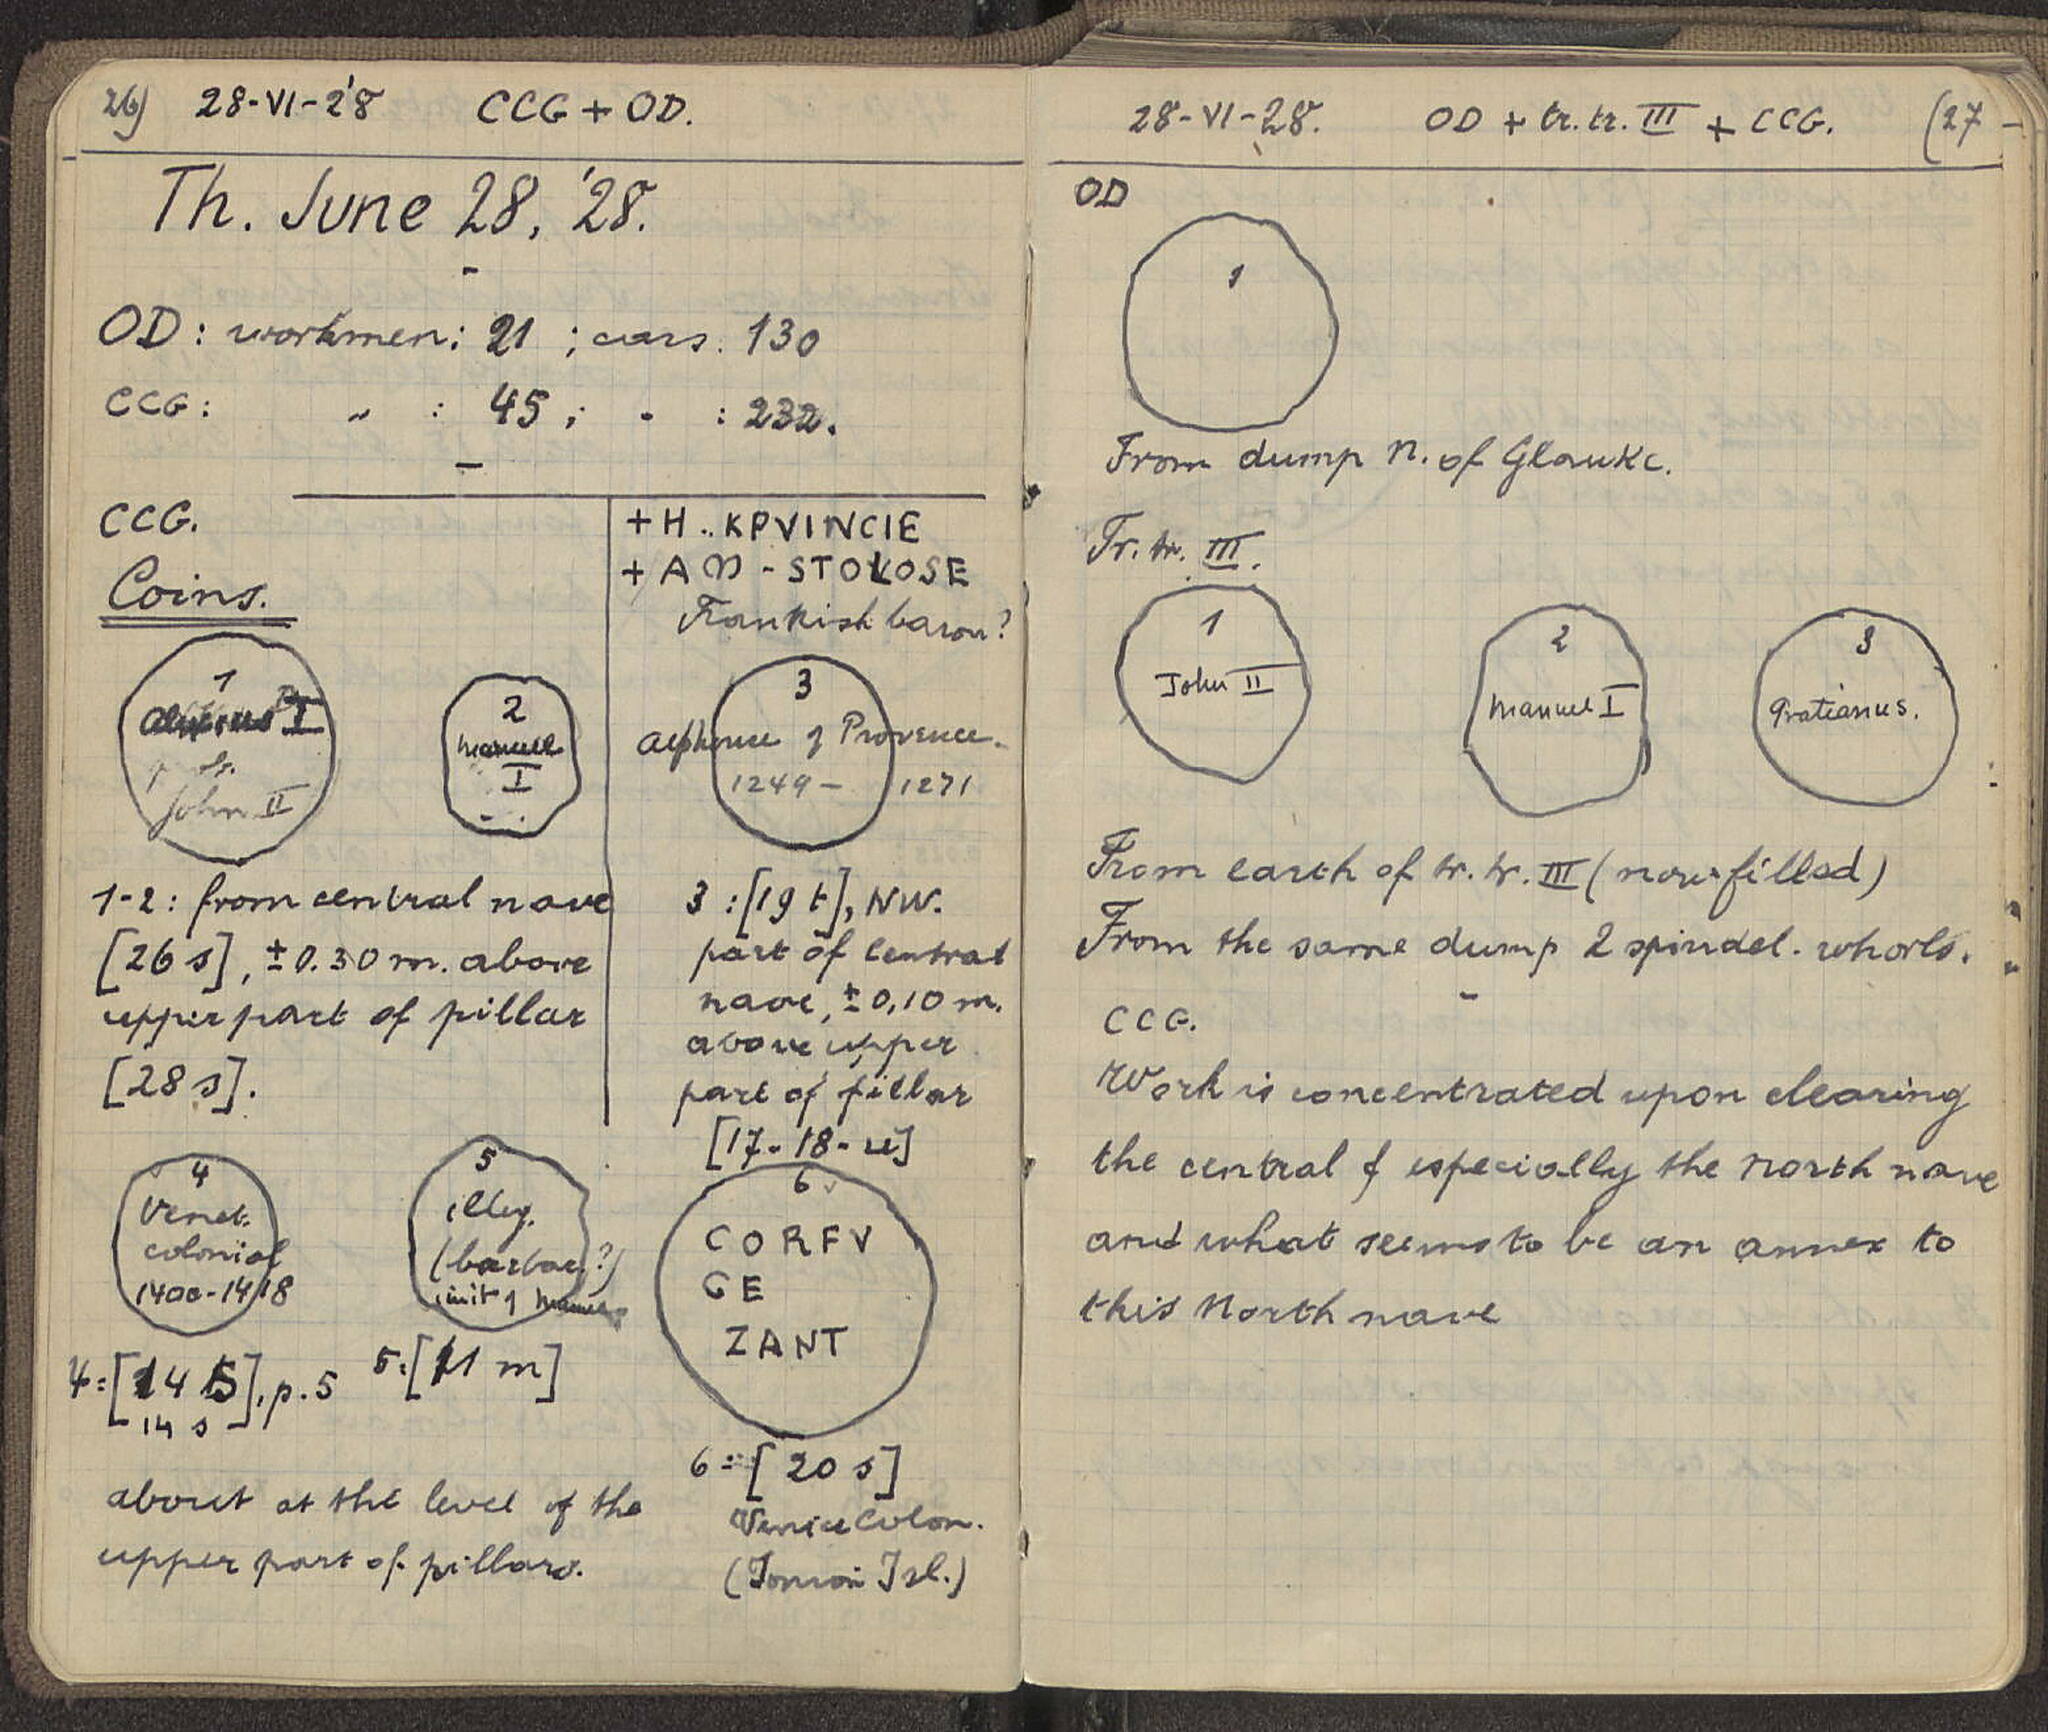 26) 28-VI-'28 CCG + OD.
Th. June 28, '28.
OD: workmen: 21 ; cars. 130
CCG: " : 45 ; " : 232.
CCG.
Coins.
+ H .. KPVINCIE
+ A M - STOLOSE
Frankish baron?
1
I
prob.
John II
2
Manuel
I
3
Alphonse of Provence.
1249 - 1271
1-2: from central nave
[26 s], ± 0.30 m. above
upper part of pillar
[28 s].
3: [19 t], NW.
part of central
nave, ± 0,10 m.
above upper
part of pillar
[17-18-u]
4
Venet.
colonial
1400-1418
5
illeg.
(barbar.?)
imit of Manuel
6
CORFV
CE
ZANT
4: [14 5], p. 5
14 s
5: [11 m]
about at the level of the
upper part of pillars.
6: [20 s]
Venice Colon.
(Ionian Isl.)
28-VI-28. OD + tr. tr. III + CCG. (27
OD
1
From dump N. of Glauke.
Tr. tr. III.
1
John II
2
Manuel I
3
Gratianus.
From earth of tr. tr. III (now filled)
From the same dump 2 spindel. whorls.
CCG.
Work is concentrated upon clearing
the central & especially the North nave
and what seems to be an annex to
this North nave